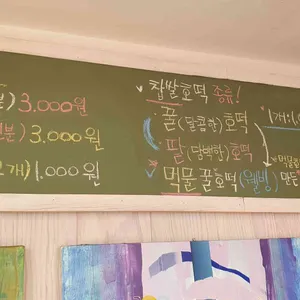 분) 3.000원
분) 3.000원
개) 1.000원
찹쌀호떡 종류!
꿀(달콤한)호떡
팥(담백한)호떡
먹물꿀호떡(웰빙)
1개:1.
만든